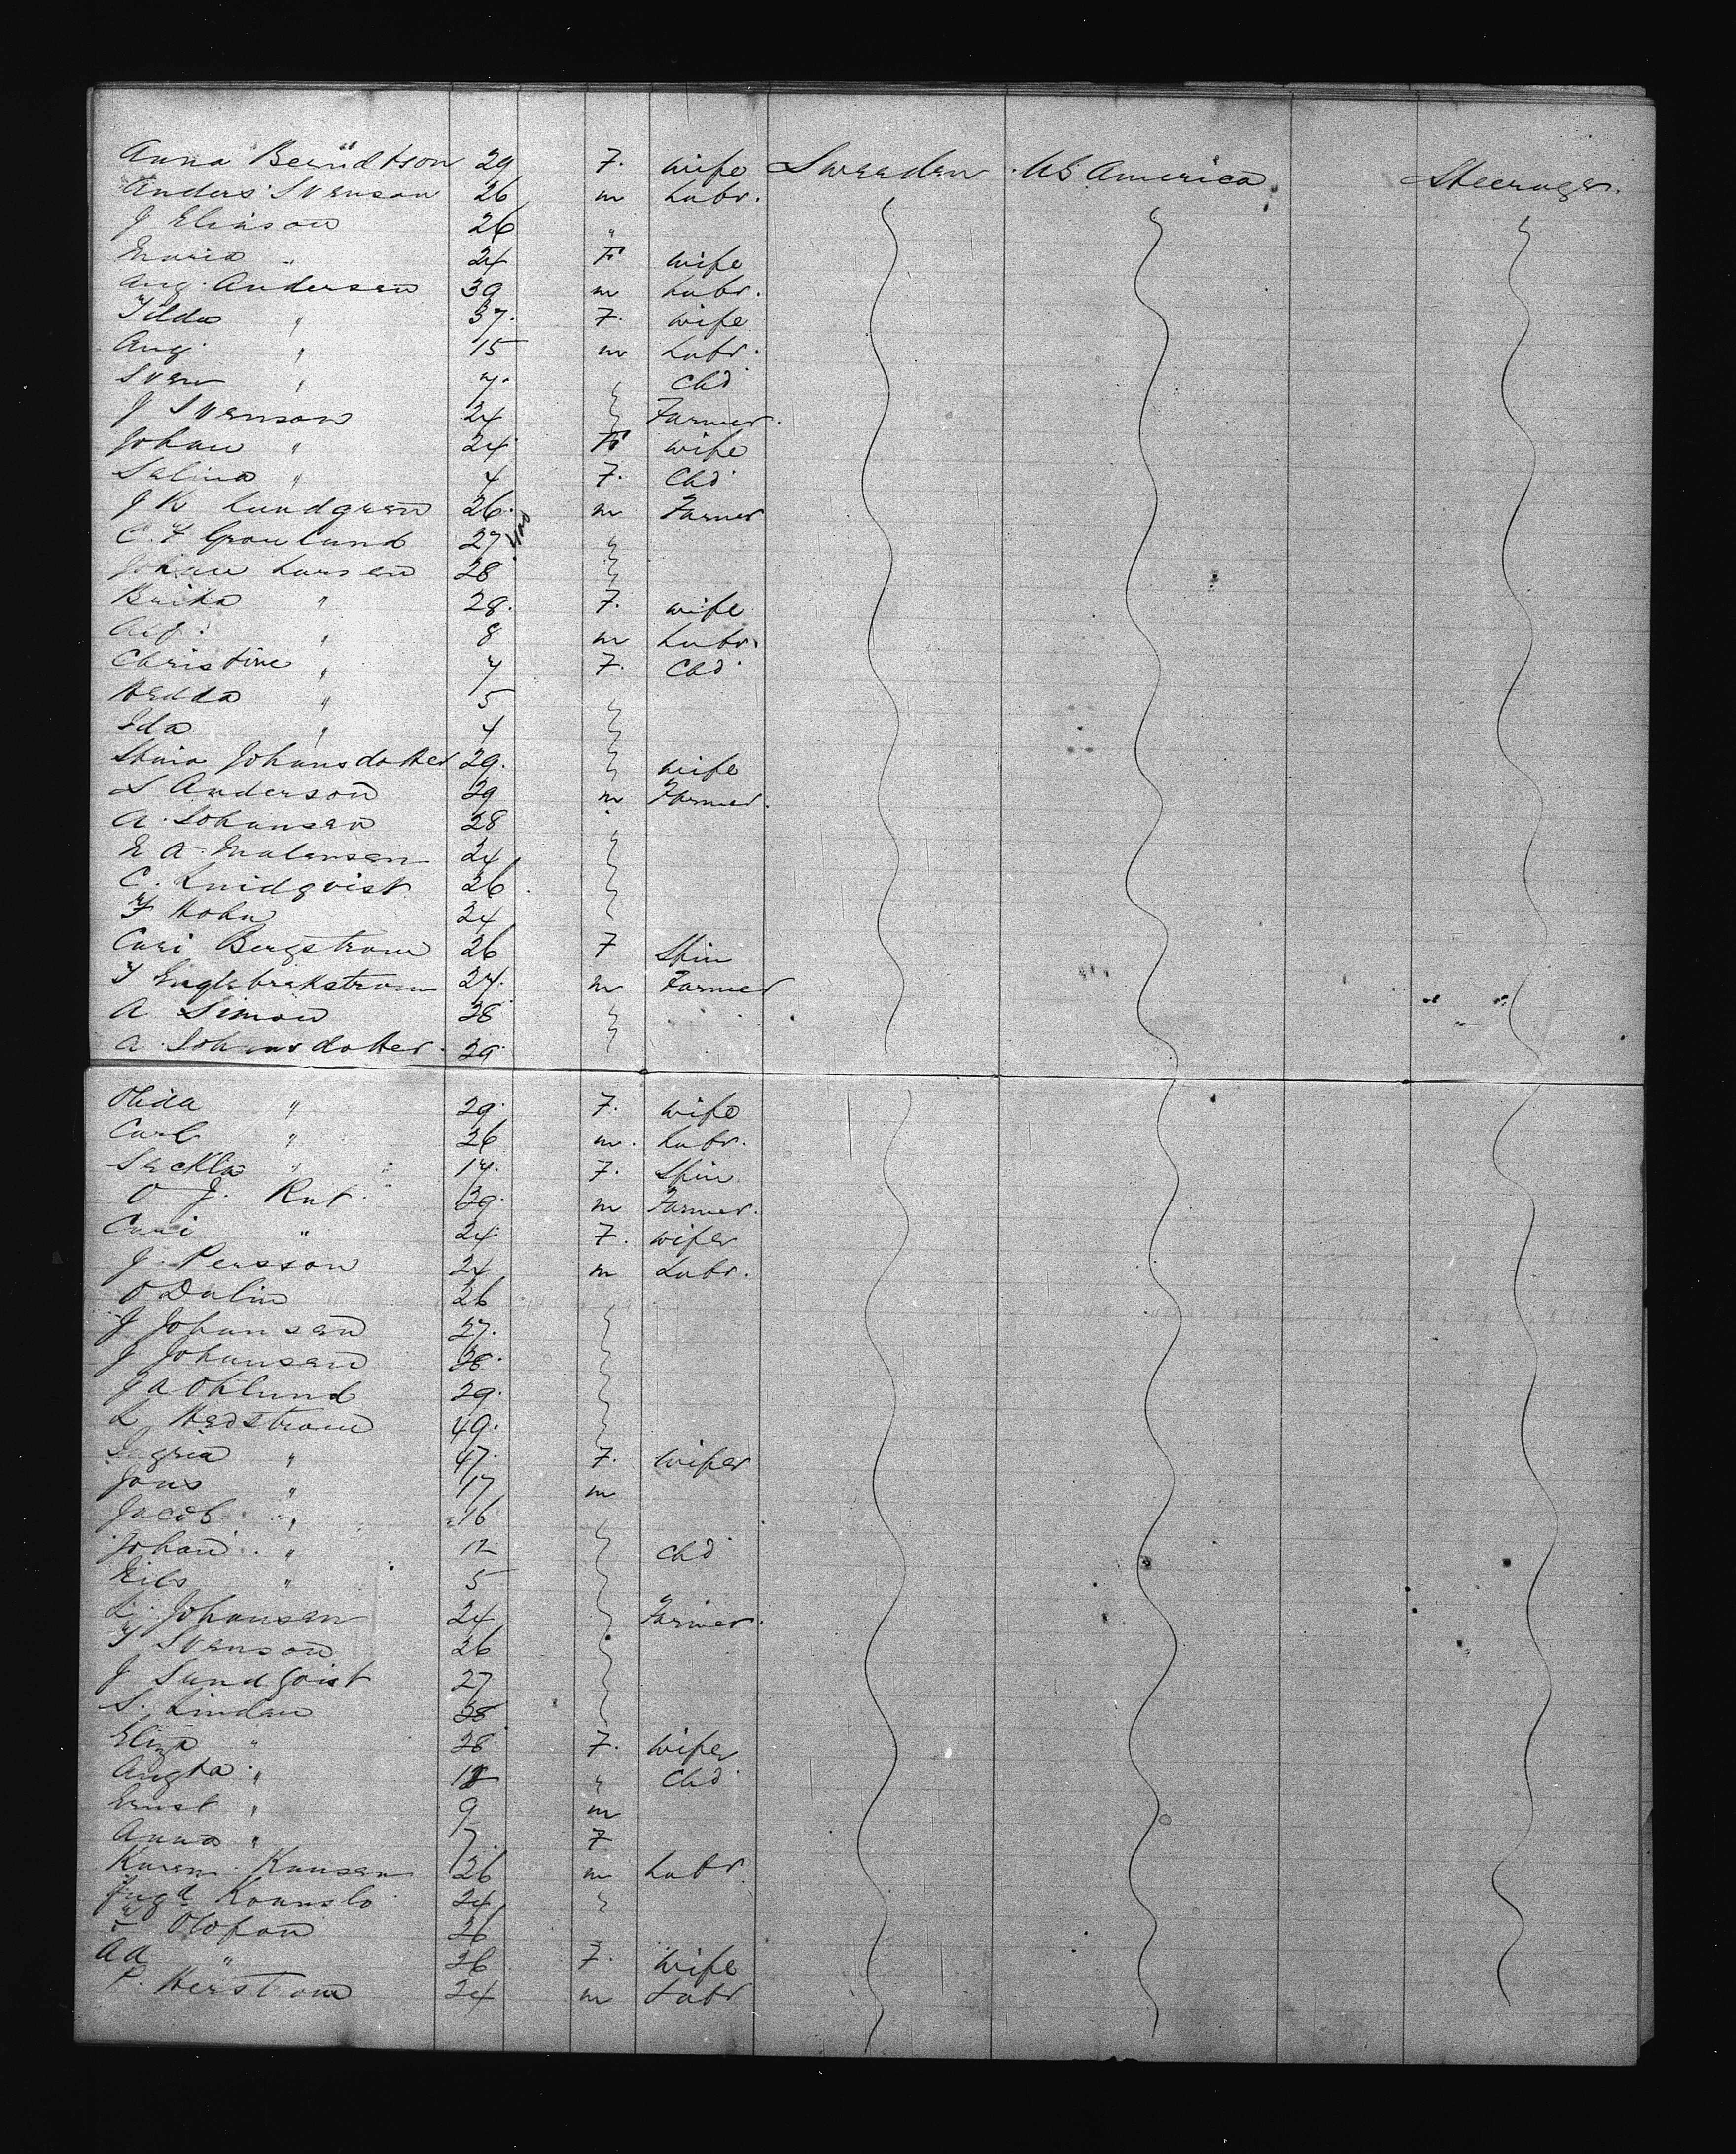 Anna Berndtson 29 F. wife Sweeden US America Steerage.
Anders Svenson 26 m Labr.
J Elinson 26 "
Maria " 24 F wife
Aug. Andersen 39 m Labr.
Tilda " 37. F. wife
Aug. " 15 m Labr.
Sven " 7. Chd
J Svenson 24 Farmer.
Johan " 24 F wife
Selina " 4 F. Chd
J K Lundgren 26. m Farmer
C. F Gronlund 27
Johan Larsen 28
Brita " 28. F. wife
8 m Labr.
Christine " 7 F. Chd
Hedda " 5
Ida " 4
Stina Johansdotter 29. wife
S Anderson 29 m Farmer.
A. Johansen 28
E A 24
C. 26
F Hohn 24
Cari Bergstrom 26 F Spin
24. m Farmer
A Simon 28
A. Johansdotter. 29
Olida " 29. F. wife
Carl " 26 m. Labr.
Seckla " 14. F. Spin
O J. Rut. 39. m Farmer.
Cari " 24 F. wife
J. Persson 24 m Labr.
O Dalin 26
J Johansen 27.
J Johansen 28.
J A Oklund 29.
L Hedstrom 49.
" 47. F. wife
Jons " 17 m
Jacob " 16
Johan " 12 Chd
Nils " 5
L. Johansen 24 Farmer.
T Svenson 26
J Sundqvist 27
S. Lindau 28
Eliza " 28 F. wife
Augta " " Chd
Ernst " 9 m
Anna " 7. F
Karen Hansen 26 m Labr.
24
Olofson 26
Aa " 26 F. wife
P. 24 m Labr